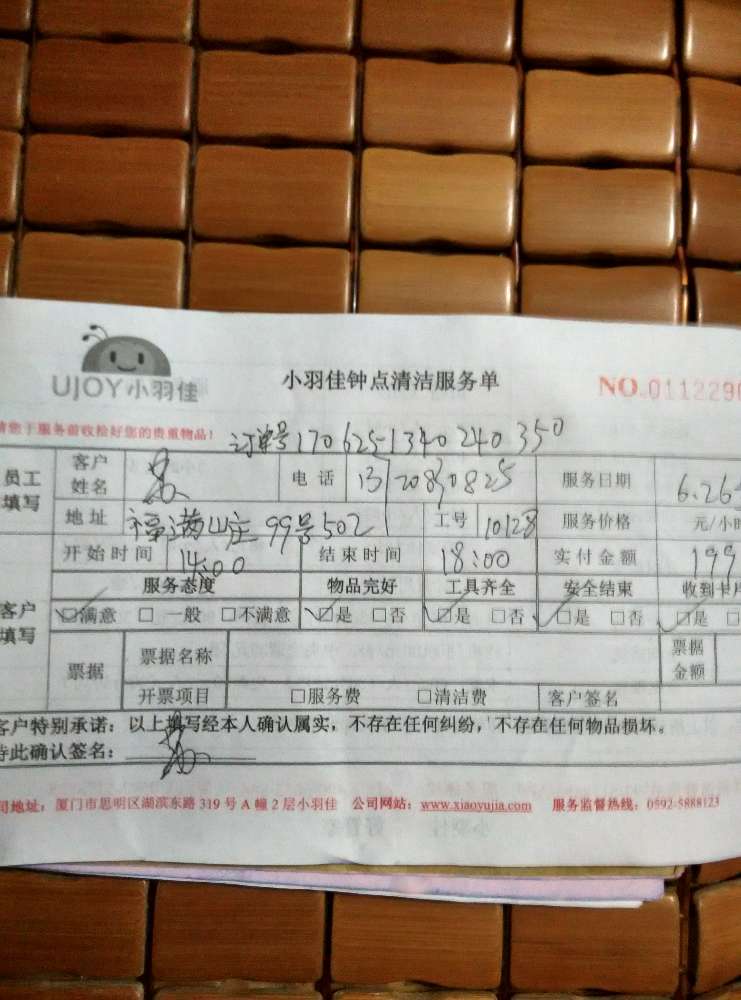 UJOY小羽佳
小羽佳钟点清洁服务单
NO.0112290
请您于服务前收捡好您的贵重物品!
订单号1706251340240350
员工填写 客户姓名 电话 服务日期 6.26
地址 福满山庄 99号502 工号 10128 服务价格 元/小时
开始时间 14:00 结束时间 18:00 实付金额 199
客户填写 服务态度 物品完好 工具齐全 安全结束 收到卡片
☑满意 □ 一般 □不满意 ☑是 □否 ☑是 □否 ☑是 □否 ☑是 □
票据 票据名称 票据金额
开票项目 □服务费 □清洁费 客户签名
客户特别承诺：以上填写经本人确认属实，不存在任何纠纷，不存在任何物品损坏。
特此确认签名：
司地址：厦门市思明区湖滨东路 319 号 A 幢 2 层小羽佳 公司网站：www.xiaoyujia.com 服务监督热线：0592-5888123